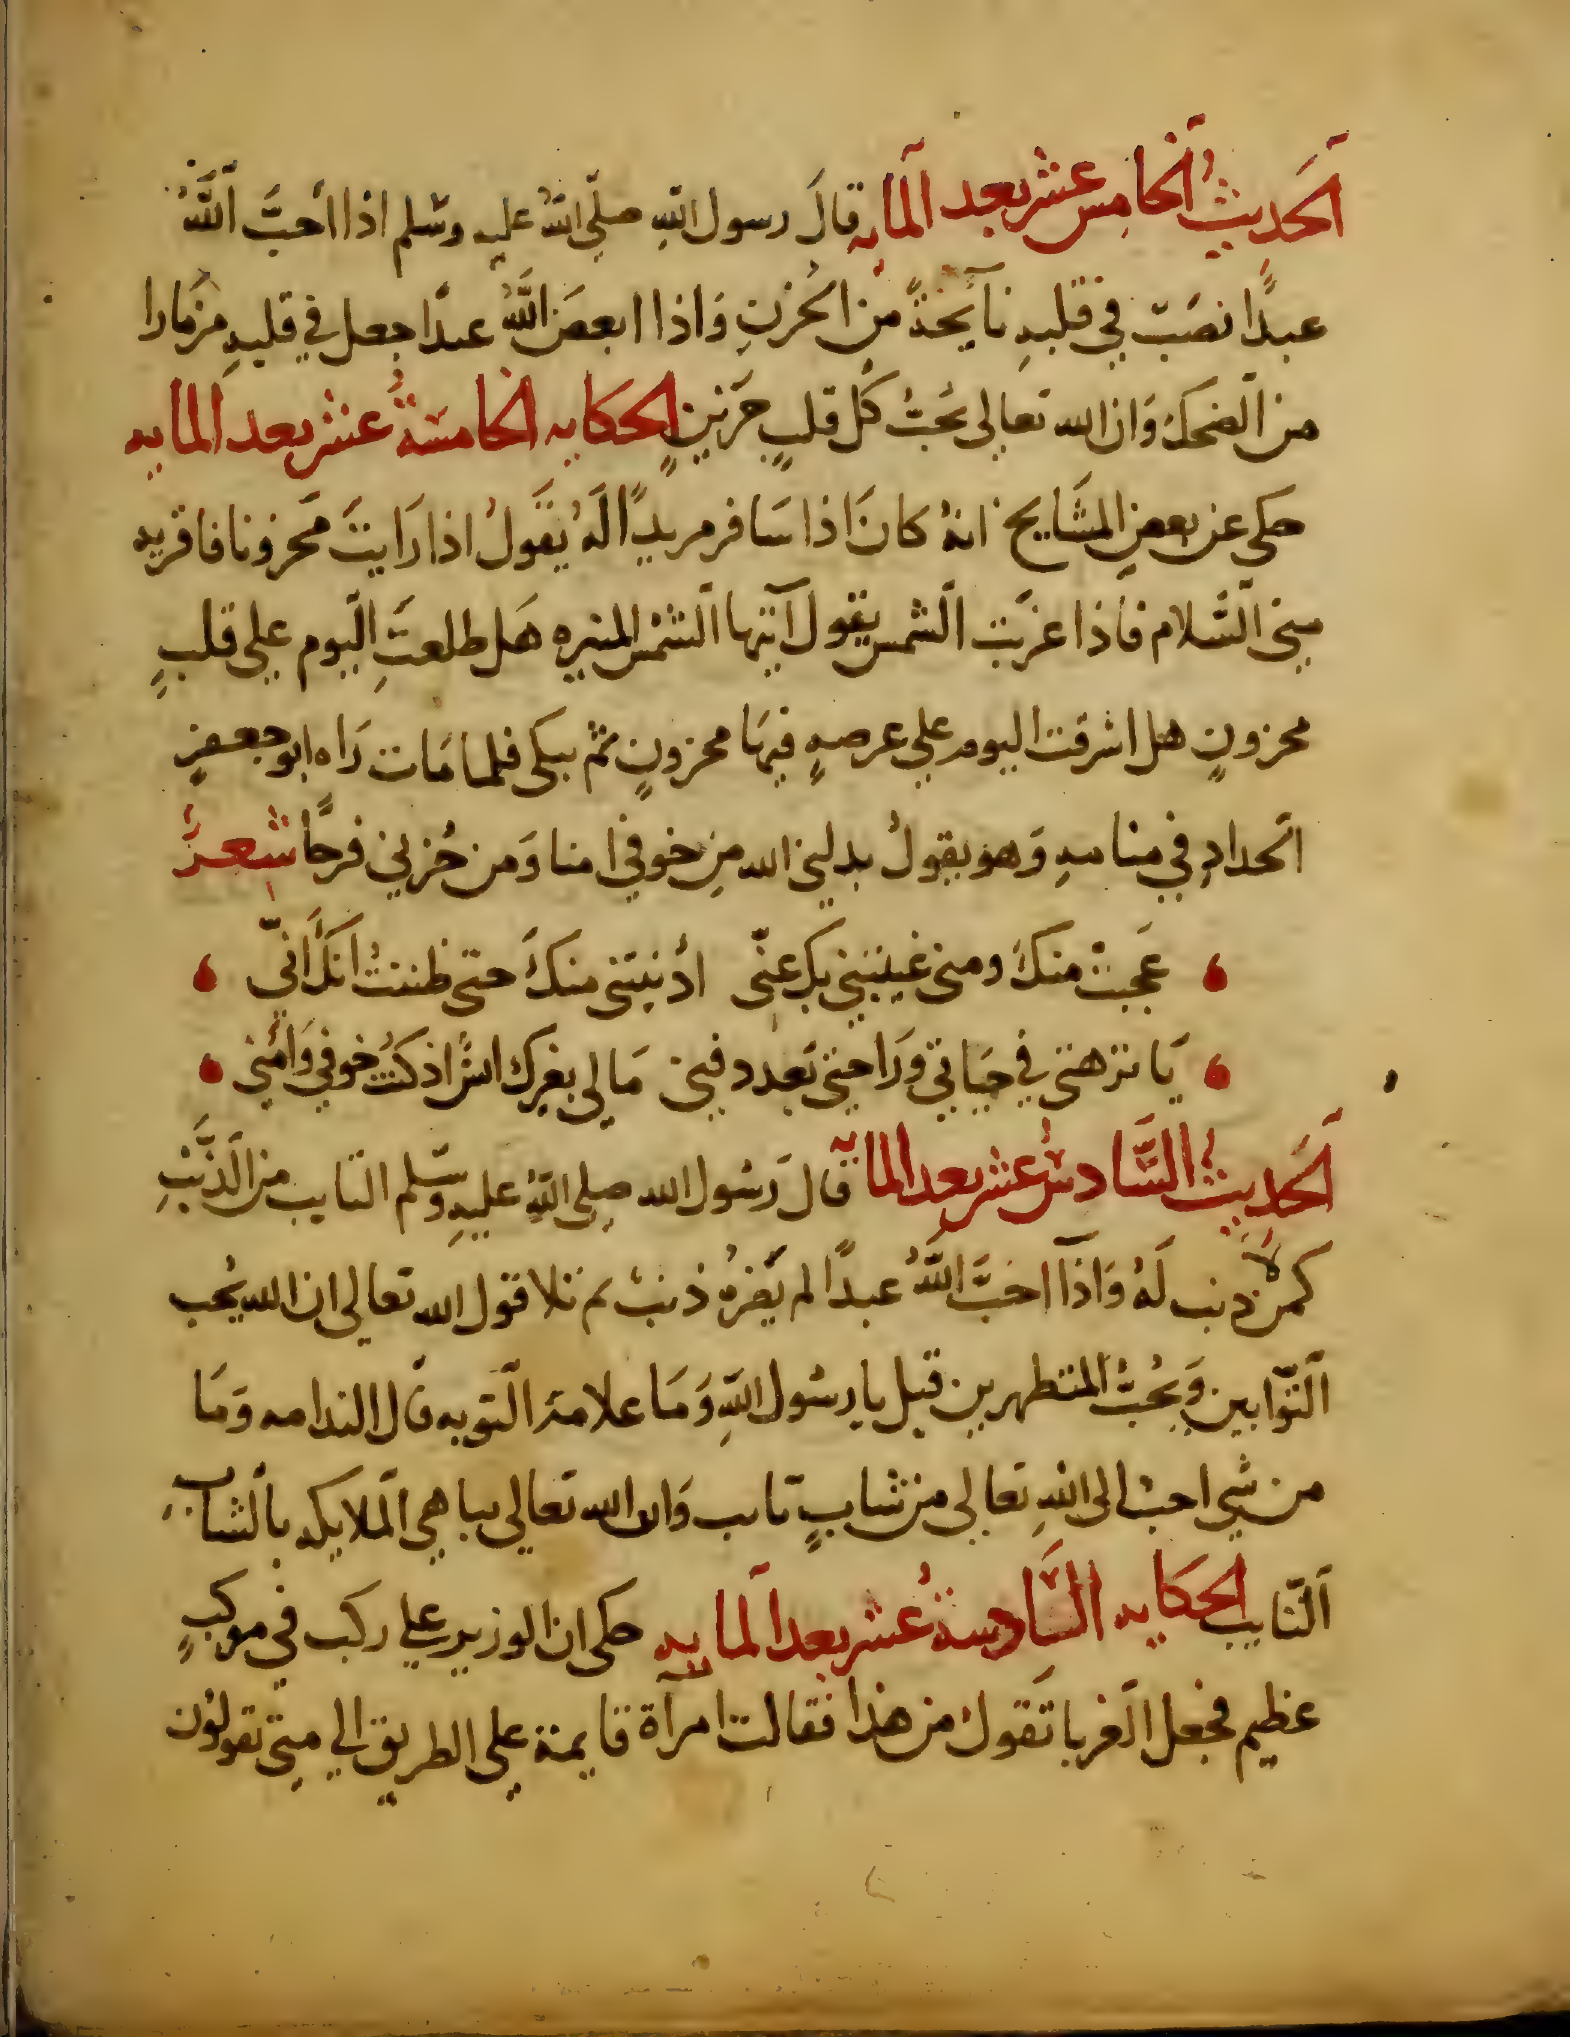 الحديث الخامس عشر بعد المايه قالَ رسول اللهِ صلّى اللهُ عليه وسّلم اذا احبَّ اللَّهُ
عبدًا نصَبَ في قلبهِ نايحةً من الحُزنِ وَاذا ابعضَ اللَّهُ عبدًا جعل في قلبهِ مزمارا
من الضحك وَان الله تعالى يحبُّ كُل قلبٍ حزينٍ الحكايه الخامسة عشر بعد المايه
حكي عن بعضِ المشَايخ انهُ كان اذا سَافر مريدًا لَهُ يقَولُ اذا رَايتَ محزونا فاقريه
مني السَّلام فاذا غربَت الشمس يقول ايتها الشمس المنيره هَل طلعتِ اليوم على قلبٍ
محزونٍ هل اشرقت اليوم علي عرصهٍ فيهَا محزونٍ ثم يبكى فلما مَات رَاه ابو جعفرٍ
الحدادِ في منامهِ وَهو يقولُ بدلني الله مِن خوفي امنا وَمن حُزني فرحًا شِعرٌ
عَجبتُ منكَ ومني غيبتني بك عنّى ادْنيتني منكَ حتى ظننتُ انكَ انّي
يَا نزهتي في حيَاتي ورَاحتي بَعد دفني مَا لي بغيرك انسًا اذ كنتَ خوفي وَامني
الحَديث السَّادس عشر بعد المايه قالَ رَسُول الله صلى اللهُ عليهِ وسّلم التايب من الَذنبِ
كمن لا ذنب لَهُ وَاذَا احَبَّ اللَّهُ عبدًا لم يَضرهُ ذنبٌ ثم تلا قول الله تعالى ان الله يُحب
التوّابين وَيحُبُّ المتطهرين قيل يا رسُول اللهِ وَمَا علامة التَوبه قال الندامه وَمَا
من شي احبُ الى اللهِ تعالى من شابٍ تايب وَان الله تعالى يباهي الملايكه بالشاب
التايب الحكايه السَّادسة عشر بعد المايه حكى ان الوزير علي ركب في موكبٍ
عظيم فجعل الغربا تَقول من هذا فقالت امرآة قايمة على الطريق الي متى تقولون